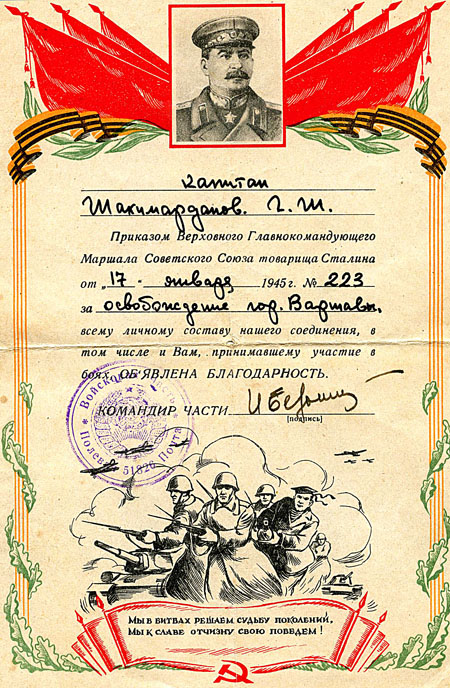 капитан
Шакимарданов. Г. Ш.
Приказом Верховного Главнокомандующего
Маршала Советского Союза товарища Сталина
от „17 - января 1945 г. № 223
за освобождение гор. Варшавы,
всему личному составу нашего соединения, в
том числе и Вам, принимавшему участие в
боях, ОБ'ЯВЛЕНА БЛАГОДАРНОСТЬ.
КОМАНДИР ЧАСТИ
(подпись)
Войсков
Полевая Почта 51826
МЫ В БИТВАХ РЕШАЕМ СУДЬБУ ПОКОЛЕНИЙ,
МЫ К СЛАВЕ ОТЧИЗНУ СВОЮ ПОВЕДЕМ!